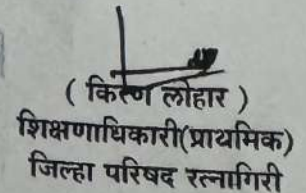 ( किरण लोहार )
शिक्षणाधिकारी(प्राथमिक)
जिल्हा परिषद रत्नागिरी